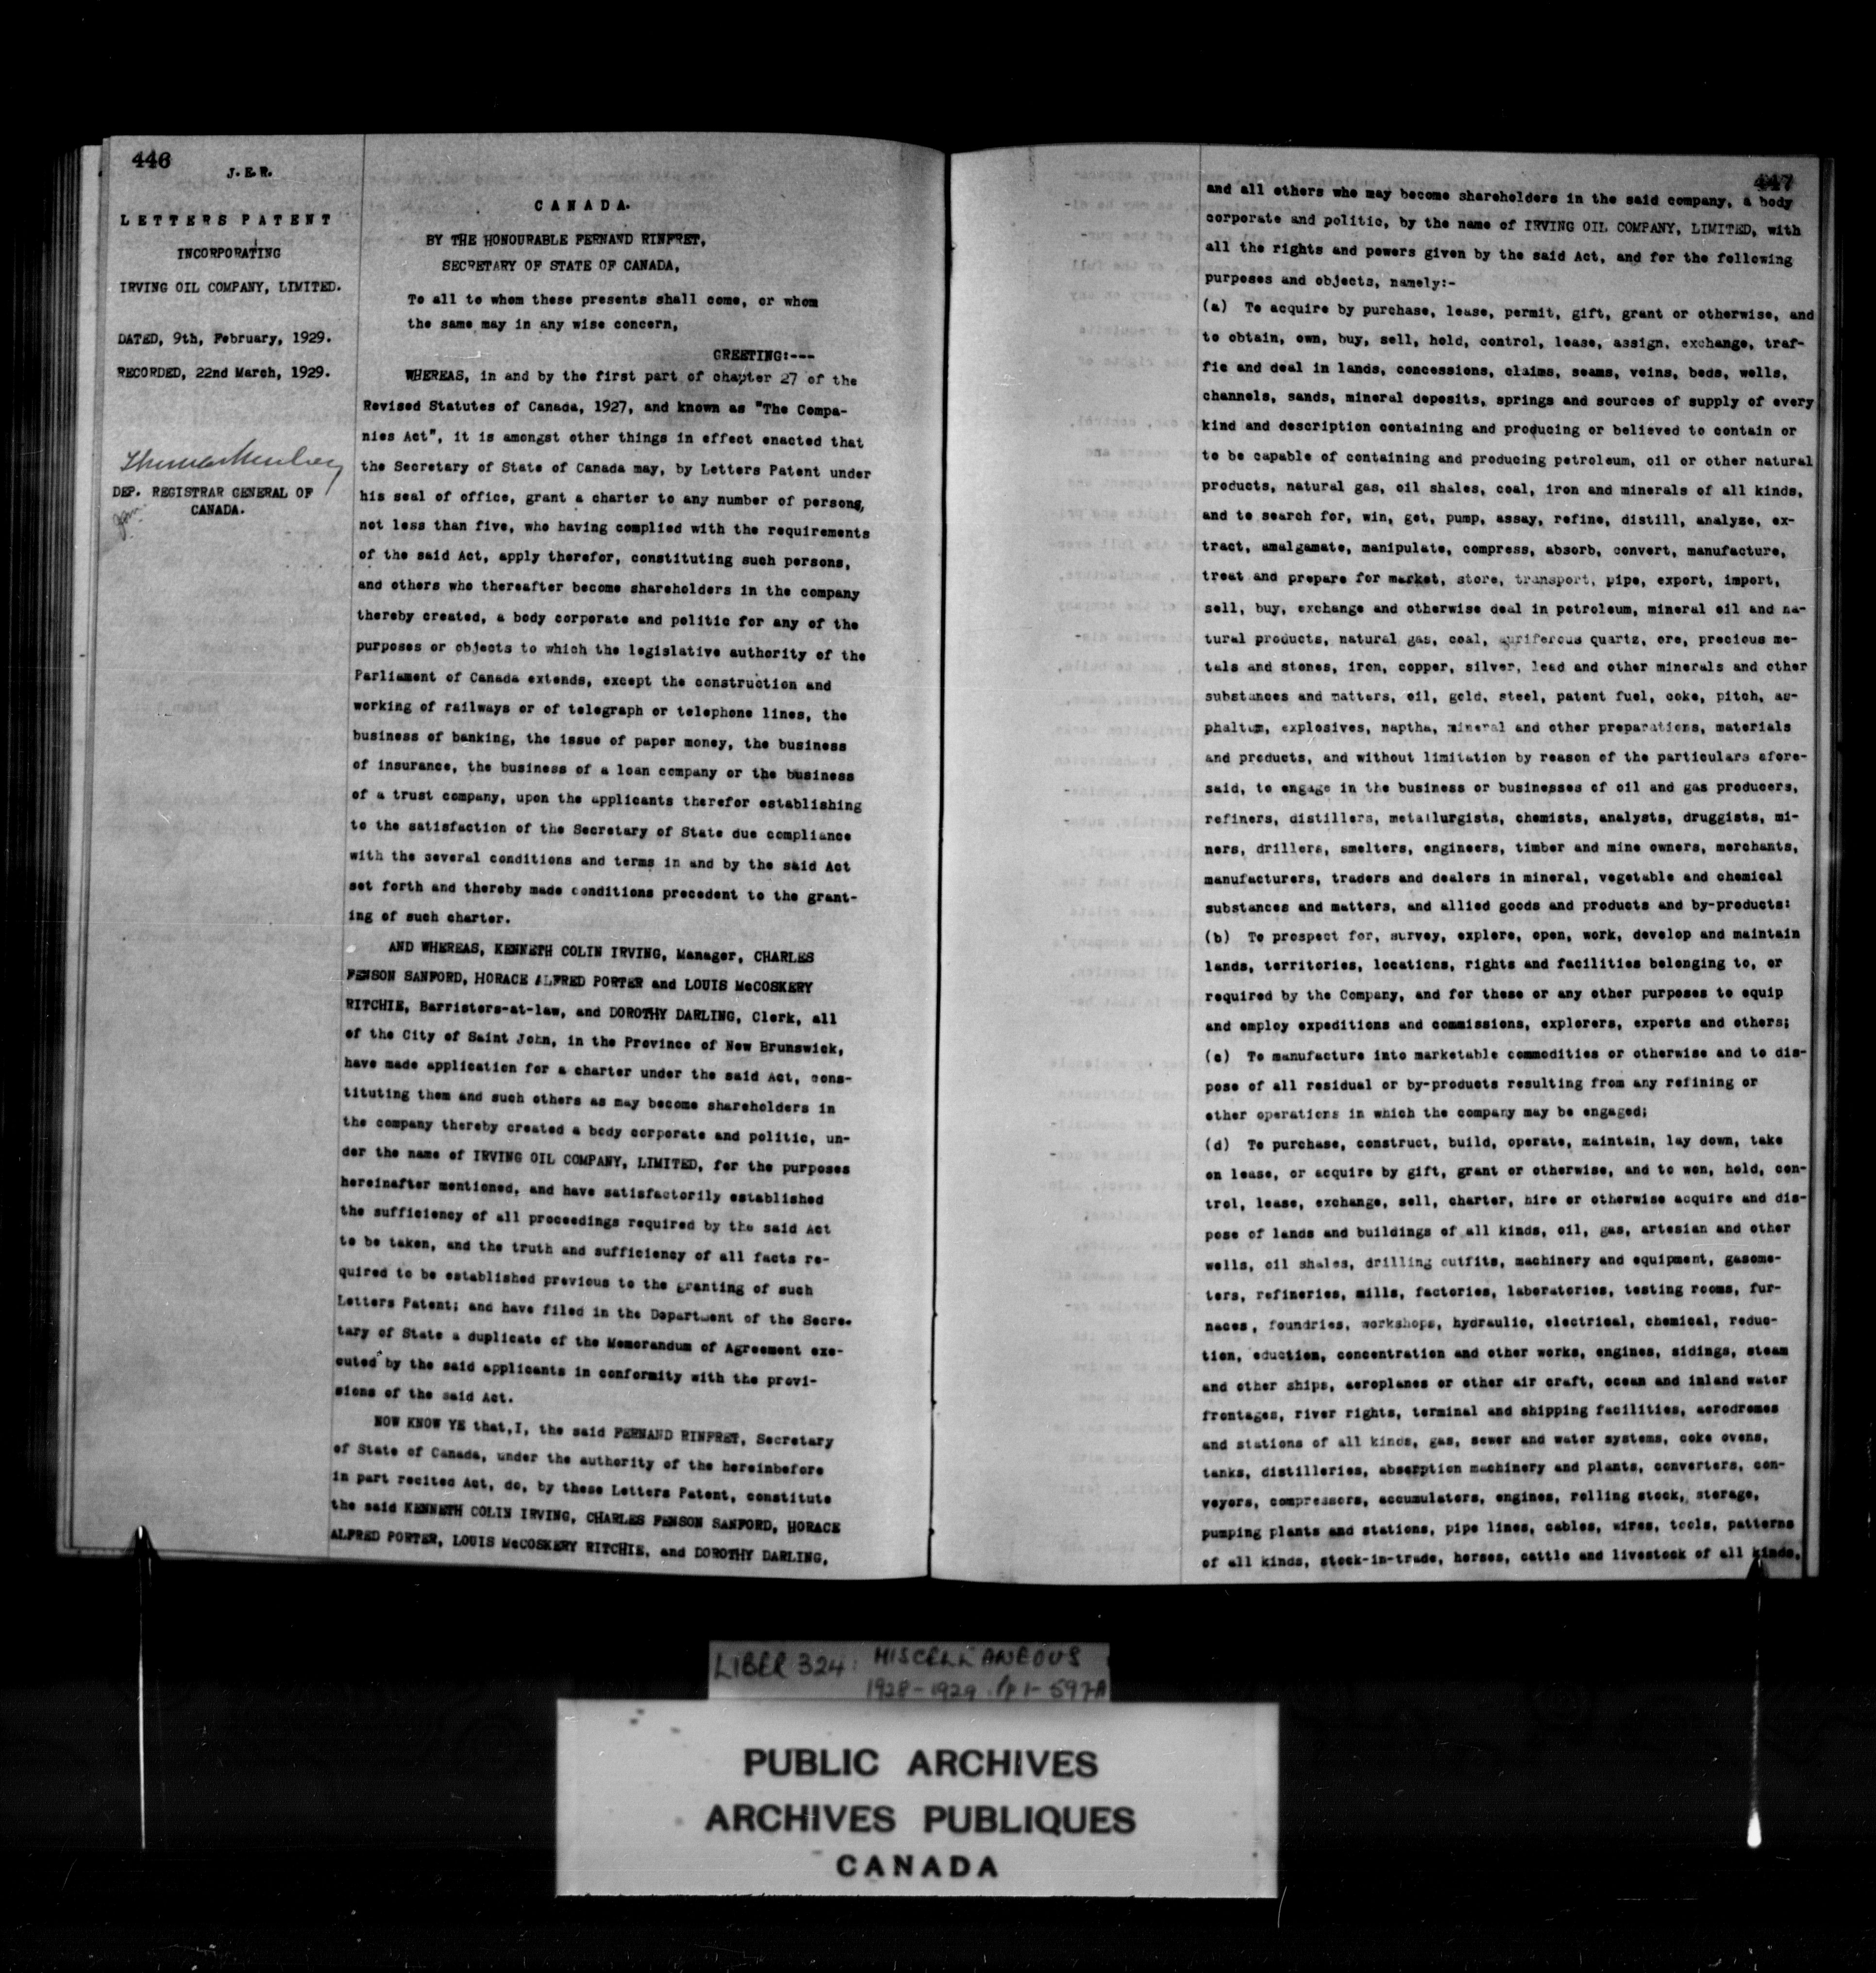 446
J. E. R.
LETTERS PATENT
INCORPORATING
IRVING OIL COMPANY, LIMITED.
DATED, 9th, February, 1929.
RECORDED, 22nd March, 1929.
DEP. REGISTRAR GENERAL OF
CANADA.
CANADA.
BY THE HONOURABLE FERNAND RINFRET,
SECRETARY OF STATE OF CANADA,
To all to whom these presents shall come, or whom
the same may in any wise concern,
GREETING:---
WHEREAS, in and by the first part of chapter 27 of the
Revised Statutes of Canada, 1927, and known as "The Compa-
nies Act", it is amongst other things in effect enacted that
the Secretary of State of Canada may, by Letters Patent under
his seal of office, grant a charter to any number of persons,
not less than five, who having complied with the requirements
of the said Act, apply therefor, constituting such persons,
and others who thereafter become shareholders in the company
thereby created, a body corporate and politic for any of the
purposes or objects to which the legislative authority of the
Parliament of Canada extends, except the construction and
working of railways or of telegraph or telephone lines, the
business of banking, the issue of paper money, the business
of insurance, the business of a loan company or the business
of a trust company, upon the applicants therefor establishing
to the satisfaction of the Secretary of State due compliance
with the several conditions and terms in and by the said Act
set forth and thereby made conditions precedent to the grant-
ing of such charter.
AND WHEREAS, KENNETH COLIN IRVING, Manager, CHARLES
FENSON SANFORD, HORACE ALFRED PORTER and LOUIS McCOSKERY
RITCHIE, Barristers-at-law, and DOROTHY DARLING, Clerk, all
of the City of Saint John, in the Province of New Brunswick,
have made application for a charter under the said Act, cons-
tituting them and such others as may become shareholders in
the company thereby created a body corporate and politic, un-
der the name of IRVING OIL COMPANY, LIMITED, for the purposes
hereinafter mentioned, and have satisfactorily established
the sufficiency of all proceedings required by the said Act
to be taken, and the truth and sufficiency of all facts re-
quired to be established previous to the granting of such
Letters Patent; and have filed in the Department of the Secre-
tary of State a duplicate of the Memorandum of Agreement exe-
cuted by the said applicants in conformity with the provi-
sions of the said Act.
NOW KNOW YE that, I, the said FERNAND RINFRET, Secretary
of State of Canada, under the authority of the hereinbefore
in part recited Act, do, by these Letters Patent, constitute
the said KENNETH COLIN IRVING, CHARLES FENSON SANFORD, HORACE
ALFRED PORTER, LOUIS McCOSKERY RITCHIE, and DOROTHY DARLING,
447
and all others who may become shareholders in the said company, a body
corporate and politic, by the name of IRVING OIL COMPANY, LIMITED, with
all the rights and powers given by the said Act, and for the following
purposes and objects, namely:-
(a) To acquire by purchase, lease, permit, gift, grant or otherwise, and
to obtain, own, buy, sell, hold, control, lease, assign, exchange, traf-
fic and deal in lands, concessions, claims, seams, veins, beds, wells,
channels, sands, mineral deposits, springs and sources of supply of every
kind and description containing and producing or believed to contain or
to be capable of containing and producing petroleum, oil or other natural
products, natural gas, oil shales, coal, iron and minerals of all kinds,
and to search for, win, get, pump, assay, refine, distill, analyze, ex-
tract, amalgamate, manipulate, compress, absorb, convert, manufacture,
treat and prepare for market, store, transport, pipe, export, import,
sell, buy, exchange and otherwise deal in petroleum, mineral oil and na-
tural products, natural gas, coal, auriferous quartz, ore, precious me-
tals and stones, iron, copper, silver, lead and other minerals and other
substances and matters, oil, gold, steel, patent fuel, coke, pitch, as-
phaltum, explosives, naptha, mineral and other preparations, materials
and products, and without limitation by reason of the particulars afore-
said, to engage in the business or businesses of oil and gas producers,
refiners, distillers, metallurgists, chemists, analysts, druggists, mi-
ners, drillers, smelters, engineers, timber and mine owners, merchants,
manufacturers, traders and dealers in mineral, vegetable and chemical
substances and matters, and allied goods and products and by-products:
(b) To prospect for, survey, explore, open, work, develop and maintain
lands, territories, locations, rights and facilities belonging to, or
required by the Company, and for these or any other purposes to equip
and employ expeditions and commissions, explorers, experts and others;
(c) To manufacture into marketable commodities or otherwise and to dis-
pose of all residual or by-products resulting from any refining or
other operations in which the company may be engaged;
(d) To purchase, construct, build, operate, maintain, lay down, take
on lease, or acquire by gift, grant or otherwise, and to won, hold, con-
trol, lease, exchange, sell, charter, hire or otherwise acquire and dis-
pose of lands and buildings of all kinds, oil, gas, artesian and other
wells, oil shales, drilling outfits, machinery and equipment, gasome-
ters, refineries, mills, factories, laboratories, testing rooms, fur-
naces, foundries, workshops, hydraulic, electrical, chemical, reduc-
tion, eduction, concentration and other works, engines, sidings, steam
and other ships, aeroplanes or other air craft, ocean and inland water
frontages, river rights, terminal and shipping facilities, aerodromes
and stations of all kinds, gas, sewer and water systems, coke ovens,
tanks, distilleries, absorption machinery and plants, converters, con-
veyors, compressors, accumulators, engines, rolling stock, storage,
pumping plants and stations, pipe lines, cables, wires, tools, patterns
of all kinds, stock-in-trade, horses, cattle and livestock of all kinds,
LIBER 324: MISCELLANEOUS
1928-1929 Pp 1-597A
PUBLIC ARCHIVES
ARCHIVES PUBLIQUES
CANADA